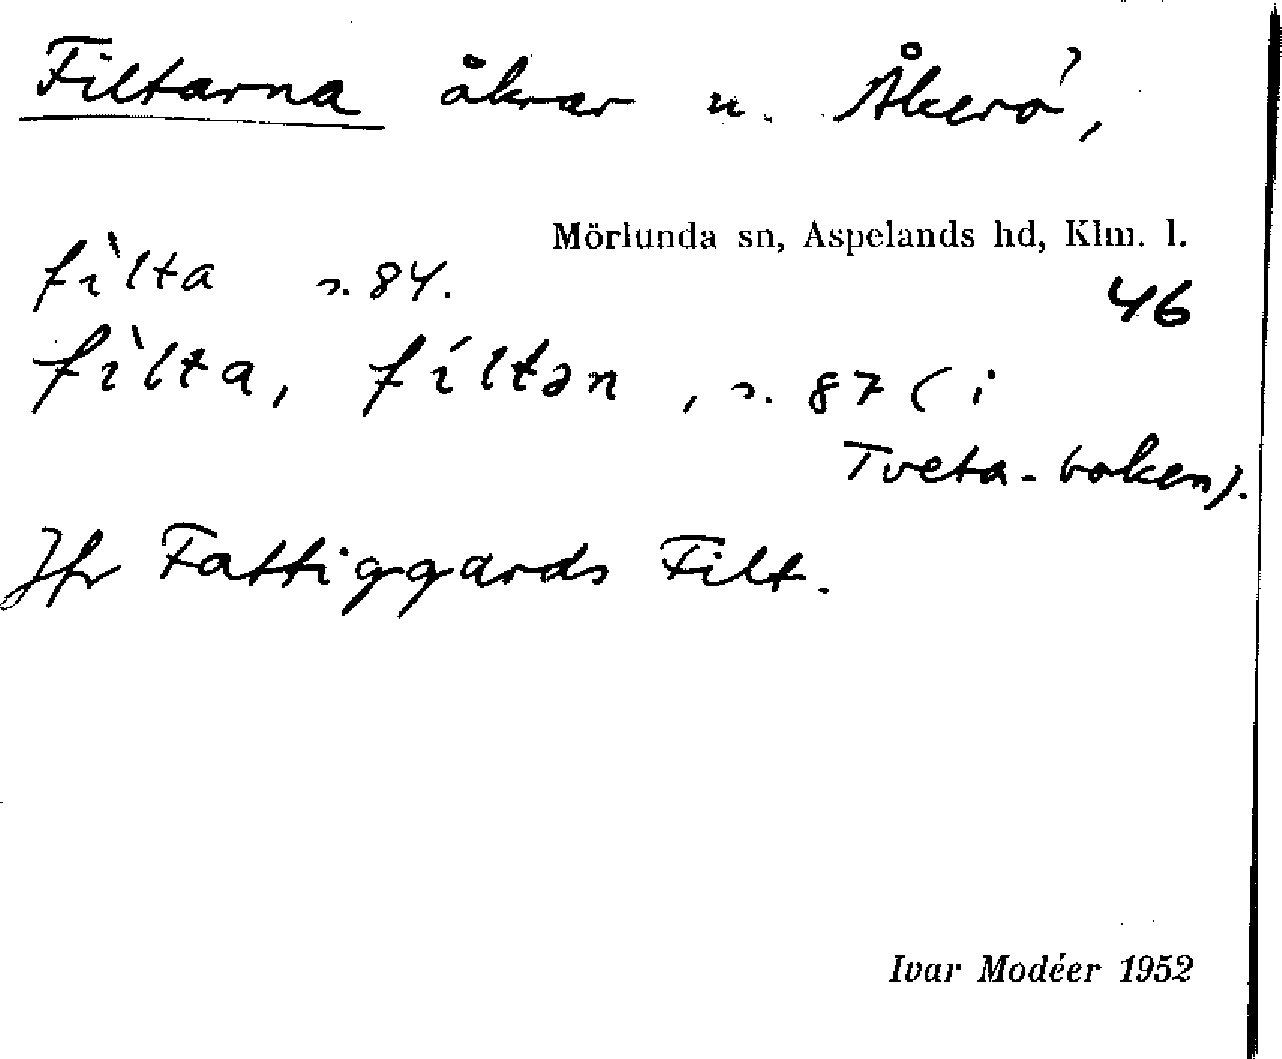 Filtarna åkrar u. Åkerö,
Mörlunda sn, Aspelands hd, Klm. l.
fìlta s. 84.
46
fìlta, fíltən, s. 87 (i
Tveta-boken).
Jfr Fattiggårds Filt.
Ivar Modéer 1952